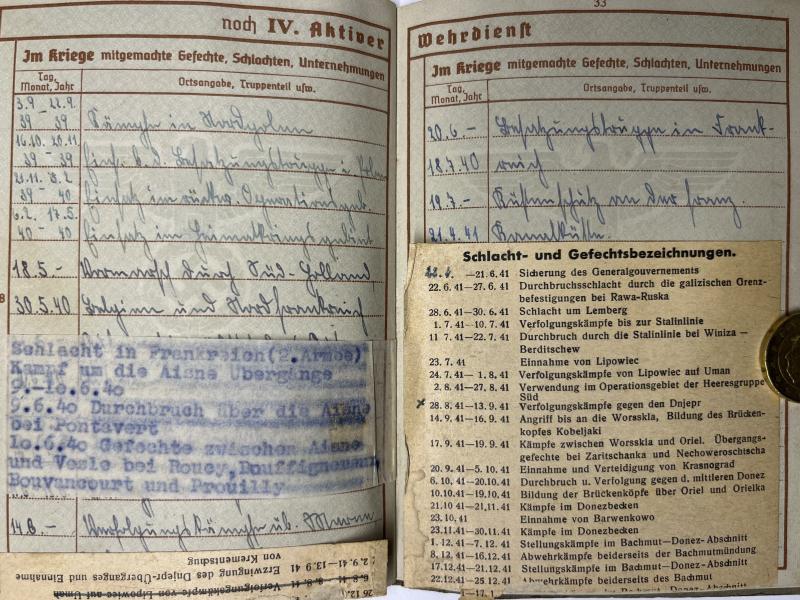 noch IV. Aktiver
Im Kriege mitgemachte Gefechte, Schlachten, Unternehmungen
Tag, Monat, Jahr
Ortsangabe, Truppenteil usw.
3.9. - 22.9.
39 39 Kämpfe in Nordpolen
16.10. 20.11.
39 - 39 Eins. b. d. Besatzungstruppe i. Polen
21.11. 5.2.
39 - 40 Einsatz im rückw. Operationsgeb.
6.2. 17.5.
40 - 40 Einsatz im Heimatkriegsgebiet
18.5. - Vormarsch durch Süd-Holland
30.5.40 Belgien und Nordfrankreich
Schlacht in Frankreich(2.Armee)
Kampf um die Aisne Übergänge
9.-10.6.40
9.6.40 Durchbruch über die Aisne
bei Pontavert
10.6.40 Gefechte zwischen Aisne
und Vesle bei Roucy, Bouffignereux
Bouvancourt und Prouilly
14.6. - Verfolgungskämpfe üb. Marne
2.9.41—13.9.41 Erzwingung des Dnjepr-Überganges und Einnahme
von Krementschug
33
Wehrdienst
Im Kriege mitgemachte Gefechte, Schlachten, Unternehmungen
Tag, Monat, Jahr
Ortsangabe, Truppenteil usw.
20.6. - Besatzungstruppe in Frank-
18.7.40 reich
19.7. - Küstenschutz an der franz.
21.4.41 Kanalküste.
Schlacht- und Gefechtsbezeichnungen.
—21. 6. 41 Sicherung des Generalgouvernements
22. 6. 41—27. 6. 41 Durchbruchsschlacht durch die galizischen Grenz-
befestigungen bei Rawa-Ruska
28. 6. 41—30. 6. 41 Schlacht um Lemberg
1. 7. 41—10. 7. 41 Verfolgungskämpfe bis zur Stalinlinie
11. 7. 41—22. 7. 41 Durchbruch durch die Stalinlinie bei Winiza —
Berditschew
23. 7. 41 Einnahme von Lipowiec
24. 7. 41— 1. 8. 41 Verfolgungskämpfe von Lipowiec auf Uman
2. 8. 41—27. 8. 41 Verwendung im Operationsgebiet der Heeresgruppe
Süd
x 28. 8. 41—13. 9. 41 Verfolgungskämpfe gegen den Dnjepr
14. 9. 41—16. 9. 41 Angriff bis an die Worsskla, Bildung des Brücken-
kopfes Kobeljaki
17. 9. 41—19. 9. 41 Kämpfe zwischen Worsskla und Oriel. Übergangs-
gefechte bei Zaritschanka und Nechoweroschtscha
20. 9. 41—5. 10. 41 Einnahme und Verteidigung von Krasnograd
6. 10. 41—20. 10. 41 Durchbruch u. Verfolgung gegen d. mittleren Donez
10.10.41—19.10. 41 Bildung der Brückenköpfe über Oriel und Orielka
21.10 41—21.11. 41 Kämpfe im Donezbecken
23. 10. 41 Einnahme von Barwenkowo
23.11.41—30.11. 41 Kämpfe im Donezbecken
1. 12. 41—7. 12. 41 Stellungskämpfe im Bachmut—Donez-Abschnitt
8. 12. 41—16.12. 41 Abwehrkämpfe beiderseits der Bachmutmündung
17.12.41—21.12. 41 Stellungskämpfe im Bachmut—Donez-Abschnitt
22.12.41—25.12. 41 Abwehrkämpfe beiderseits des Bachmut